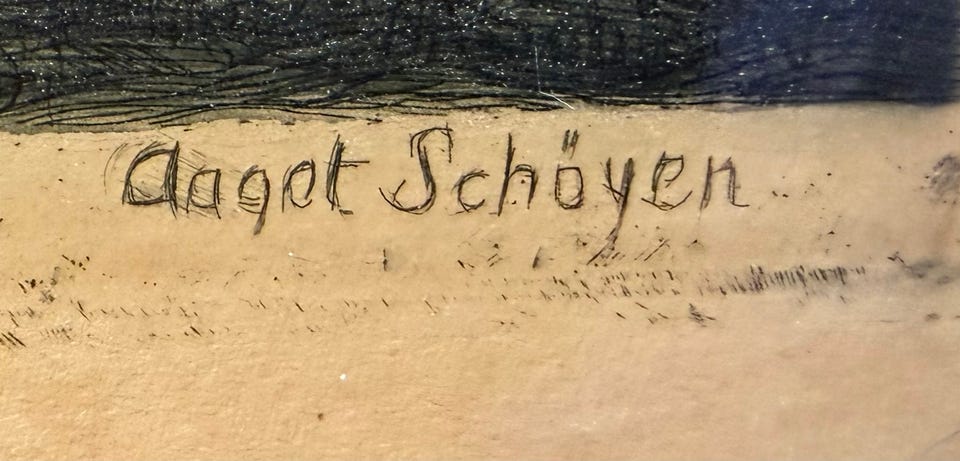 Aaget Schöyen